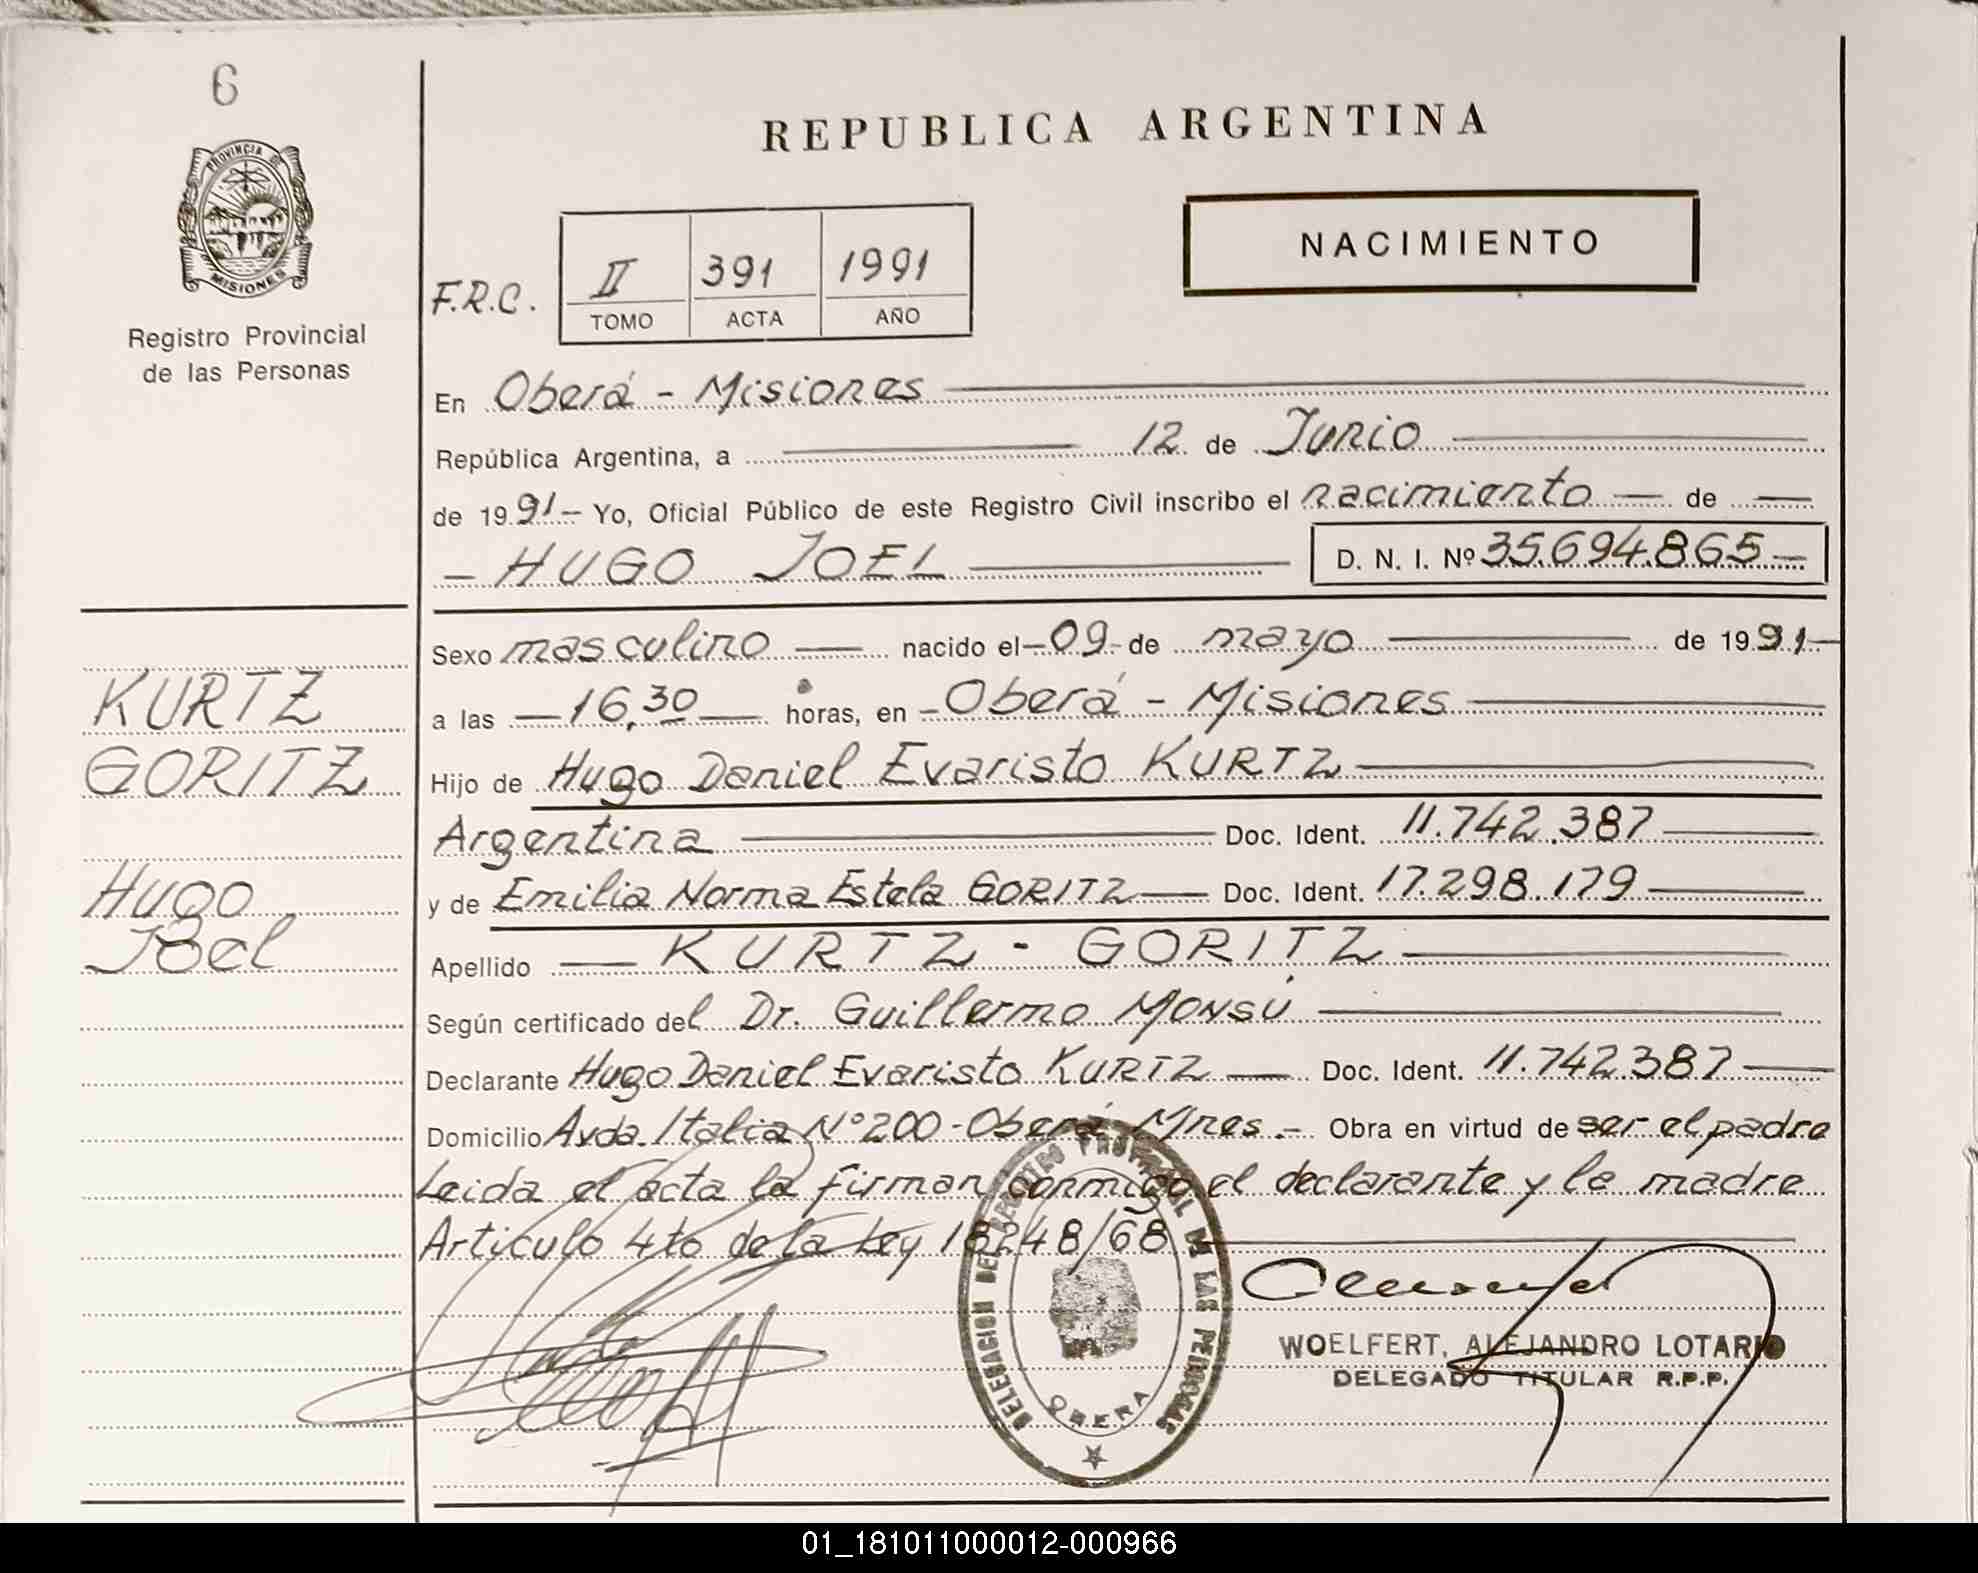 6
PROVINCIA DE
MISIONES
Registro Provincial
de las Personas
REPUBLICA ARGENTINA
NACIMIENTO
F.R.C.
II 391 1991
TOMO ACTA AÑO
En Oberá - Misiones
República Argentina, a 12 de Junio
de 1991- Yo, Oficial Público de este Registro Civil inscribo el nacimiento — de —
- HUGO JOEL — D. N. I. Nº 35.694.865 —
Sexo masculino — nacido el - 09 - de mayo — de 1991 -
a las — 16,30 — horas, en - Oberá - Misiones
Hijo de Hugo Daniel Evaristo KURTZ
Argentina — Doc. Ident. 11.742.387
y de Emilia Norma Estela GORITZ — Doc. Ident. 17.298.179
Apellido — KURTZ - GORITZ
Según certificado del Dr. Guillermo MONSÚ
Declarante Hugo Daniel Evaristo KURTZ — Doc. Ident. 11.742.387
Domicilio Avda. Italia Nº 200 - Oberá Mnes. - Obra en virtud de ser el padre
Leida el acta la firman conmigo el declarante y la madre
Articulo 4to de la Ley 18248/68
KURTZ
GORITZ
Hugo
Joel
DELEGACION DEL REGISTRO PROVINCIAL DE LAS PERSONAS
OBERA
WOELFERT, ALEJANDRO LOTARIO
DELEGADO TITULAR R.P.P.
01_181011000012-000966